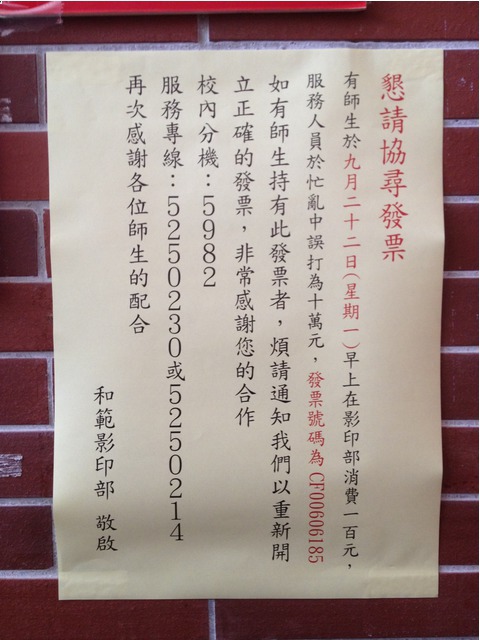 懇請協尋發票
有師生於九月二十二日(星期一)早上在影印部消費一百元，
服務人員於忙亂中誤打為十萬元，發票號碼為CF00606185
如有師生持有此發票者，煩請通知我們以重新開
立正確的發票，非常感謝您的合作
校內分機：5982
服務專線：5250230或5250214
再次感謝各位師生的配合
和範影印部 敬啟